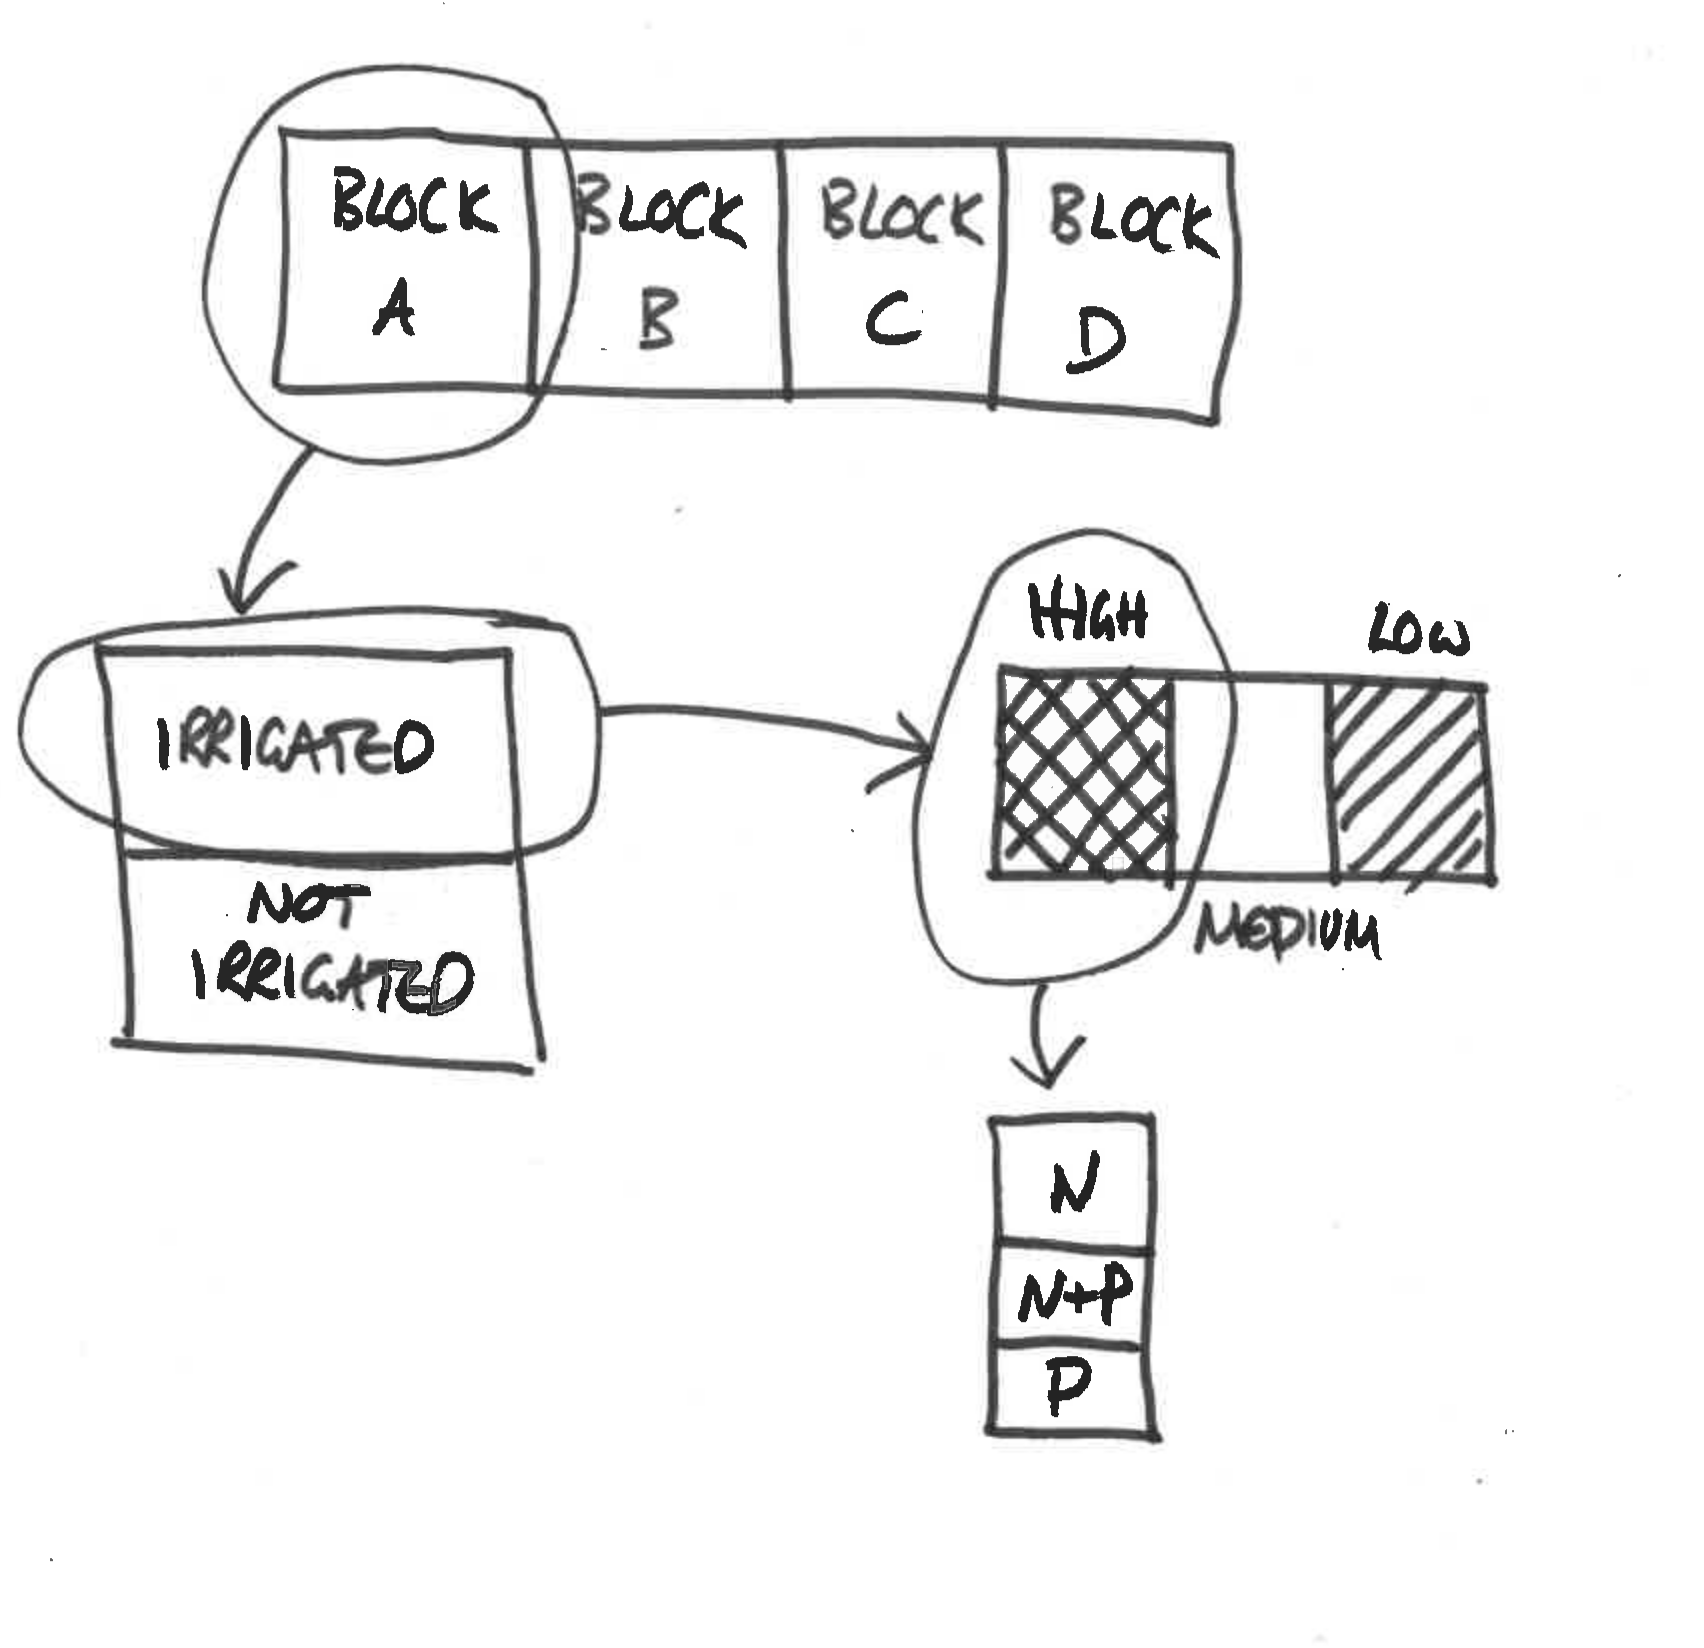 BLOCK A
BLOCK B
BLOCK C
BLOCK D
IRRIGATED
NOT
IRRIGATED
HIGH
LOW
MEDIUM
N
N+P
P